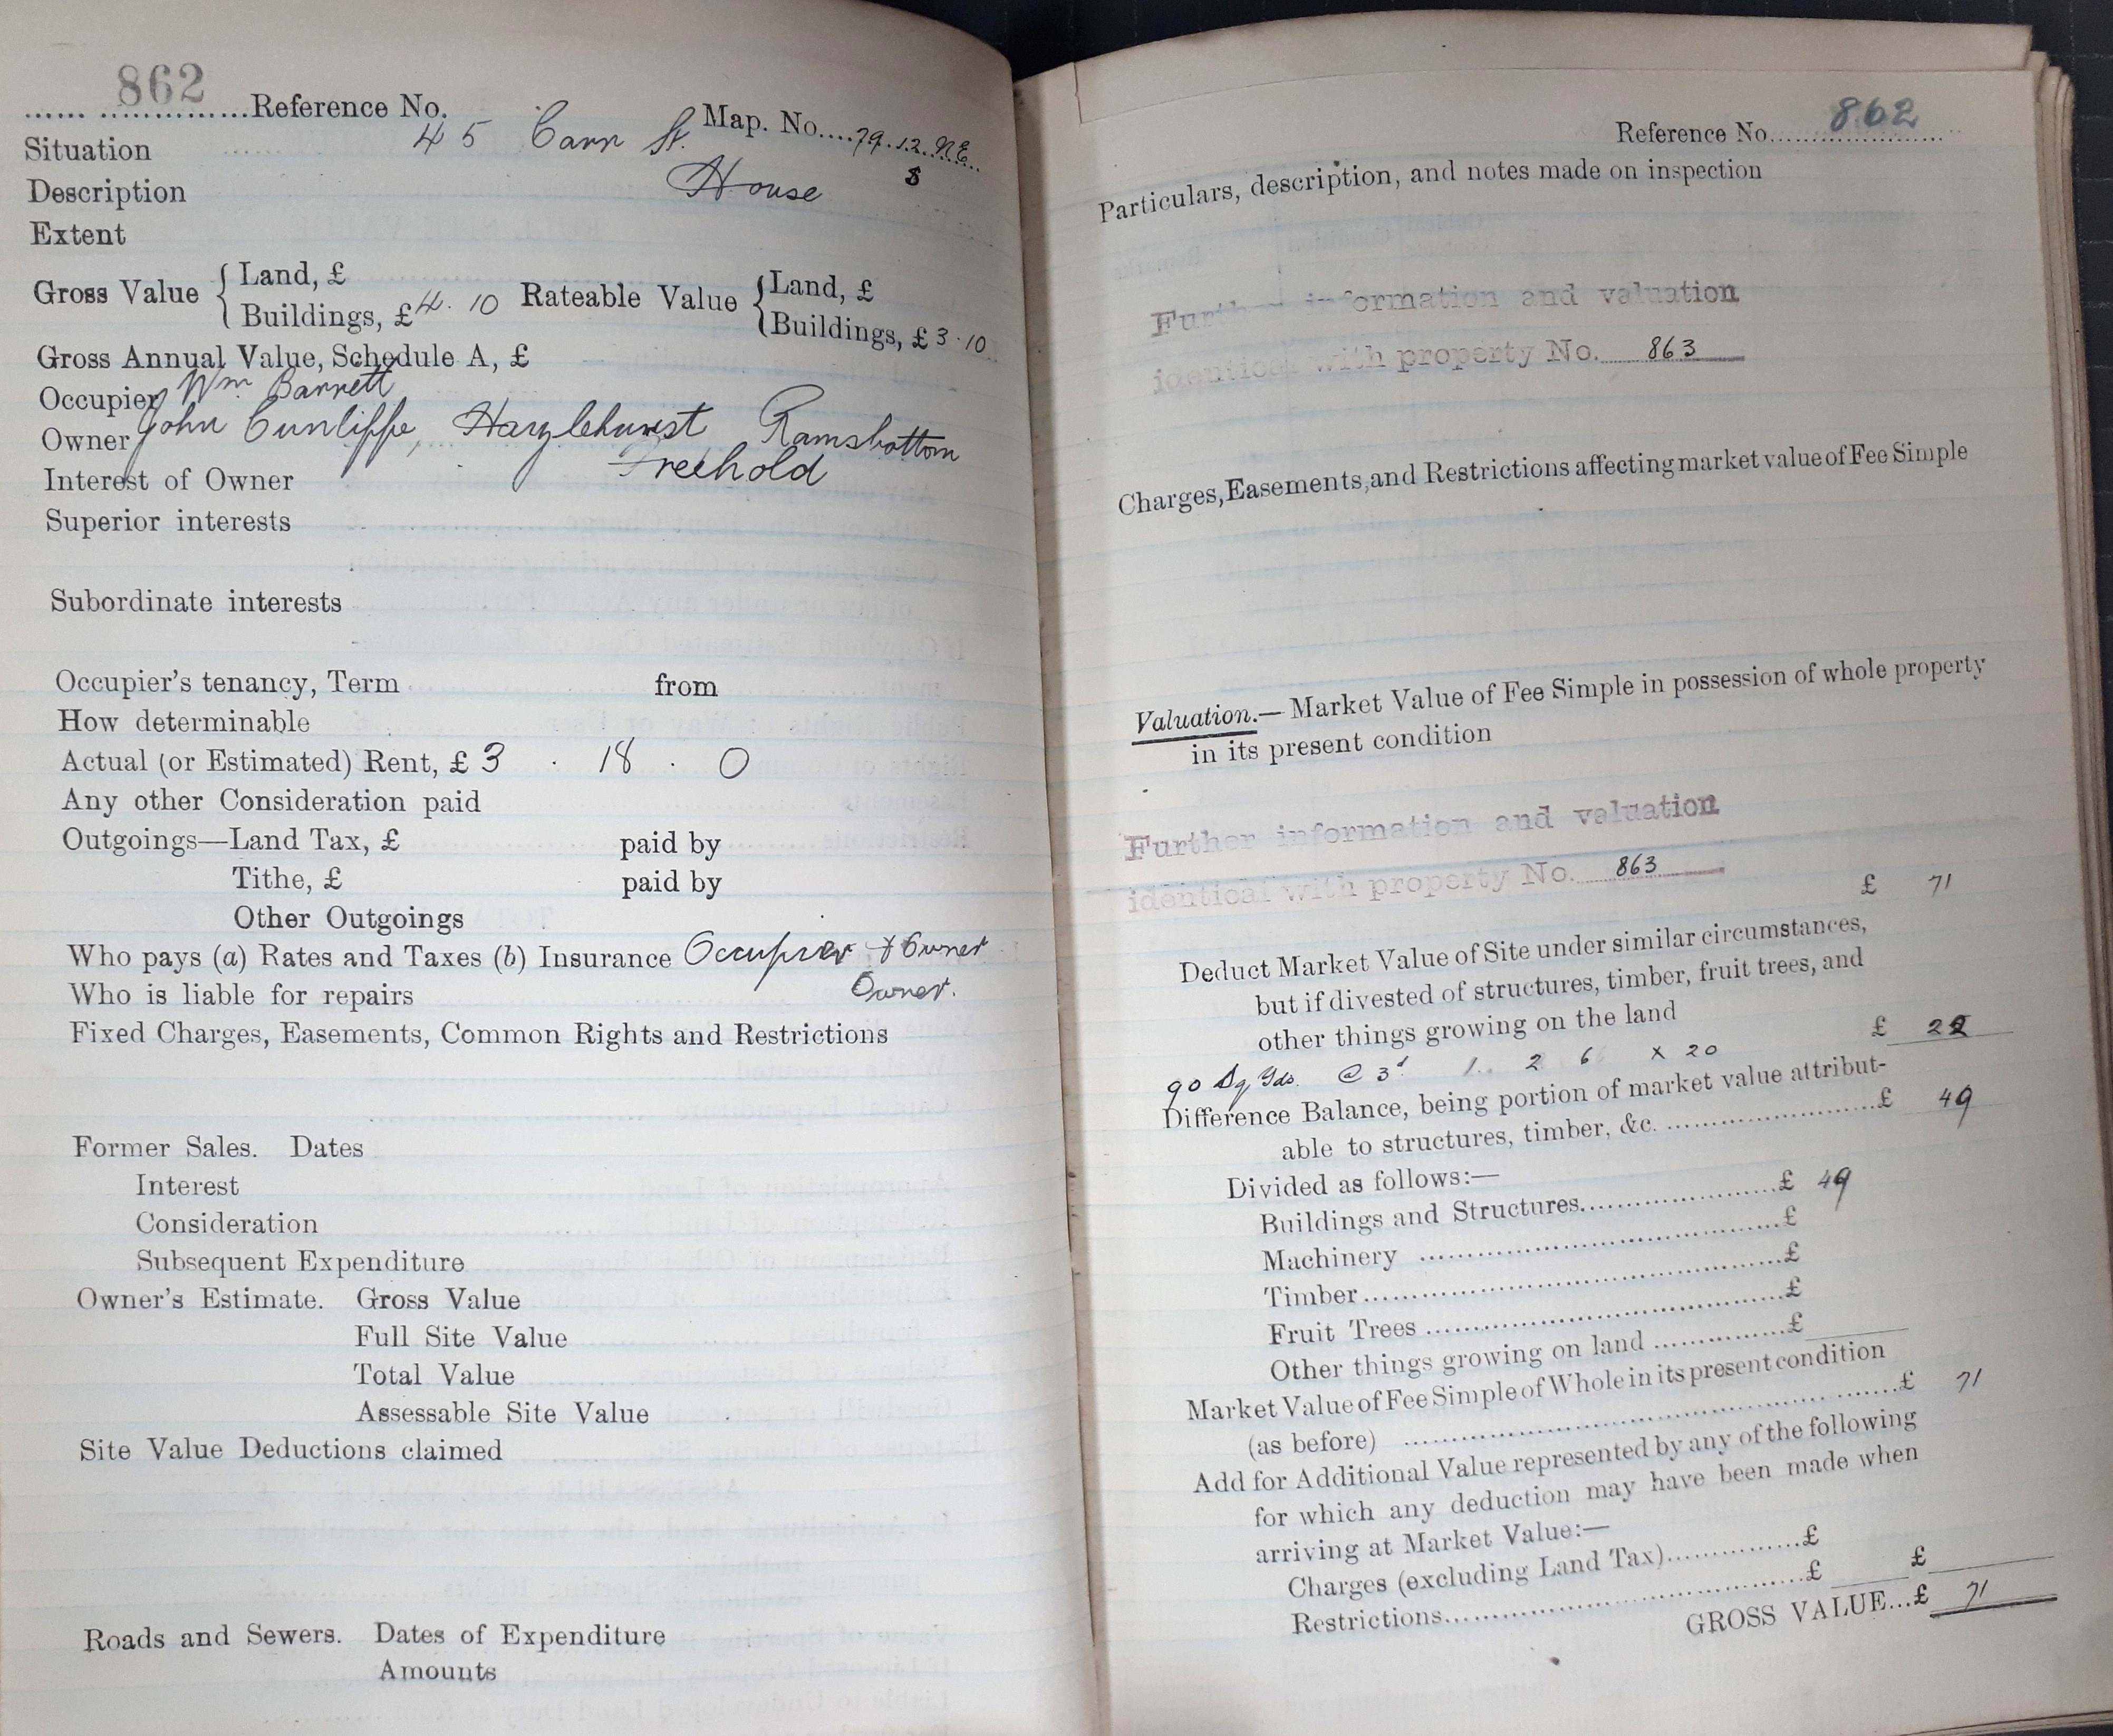 862 Reference No. Map. No. 79.12.NE
8
Situation 45 Carr St.
Description House
Extent
Gross Value { Land, £
Buildings, £ 4. 10 Rateable Value { Land, £
Buildings, £ 3.10
Gross Annual Value, Schedule A, £
Occupier Wm. Barrett
Owner John Cunliffe, Hazlehurst Ramsbottom
Interest of Owner Freehold
Superior interests
Subordinate interests
Occupier's tenancy, Term from
How determinable
Actual (or Estimated) Rent, £ 3 . 18 . 0
Any other Consideration paid
Outgoings—Land Tax, £ paid by
Tithe, £ paid by
Other Outgoings
Who pays (a) Rates and Taxes (b) Insurance Occupier & Owner
Who is liable for repairs Owner.
Fixed Charges, Easements, Common Rights and Restrictions
Former Sales. Dates
Interest
Consideration
Subsequent Expenditure
Owner's Estimate. Gross Value
Full Site Value
Total Value
Assessable Site Value
Site Value Deductions claimed
Roads and Sewers. Dates of Expenditure
Amounts
Reference No. 862
Particulars, description, and notes made on inspection
Further information and valuation
identical with property No. 863
Charges, Easements, and Restrictions affecting market value of Fee Simple
Valuation.— Market Value of Fee Simple in possession of whole property
in its present condition
Further information and valuation
identical with property No. 863
£ 71
Deduct Market Value of Site under similar circumstances,
but if divested of structures, timber, fruit trees, and
other things growing on the land £ 22
90 Sq Yds. @ 3d 1. 2 6 x 20
Difference Balance, being portion of market value attribut-
able to structures, timber, &c. £ 49
Divided as follows:—
Buildings and Structures £ 49
Machinery £
Timber £
Fruit Trees £
Other things growing on land £
Market Value of Fee Simple of Whole in its present condition
(as before) £ 71
Add for Additional Value represented by any of the following
for which any deduction may have been made when
arriving at Market Value:—
Charges (excluding Land Tax) £
Restrictions £ £
GROSS VALUE...£ 71